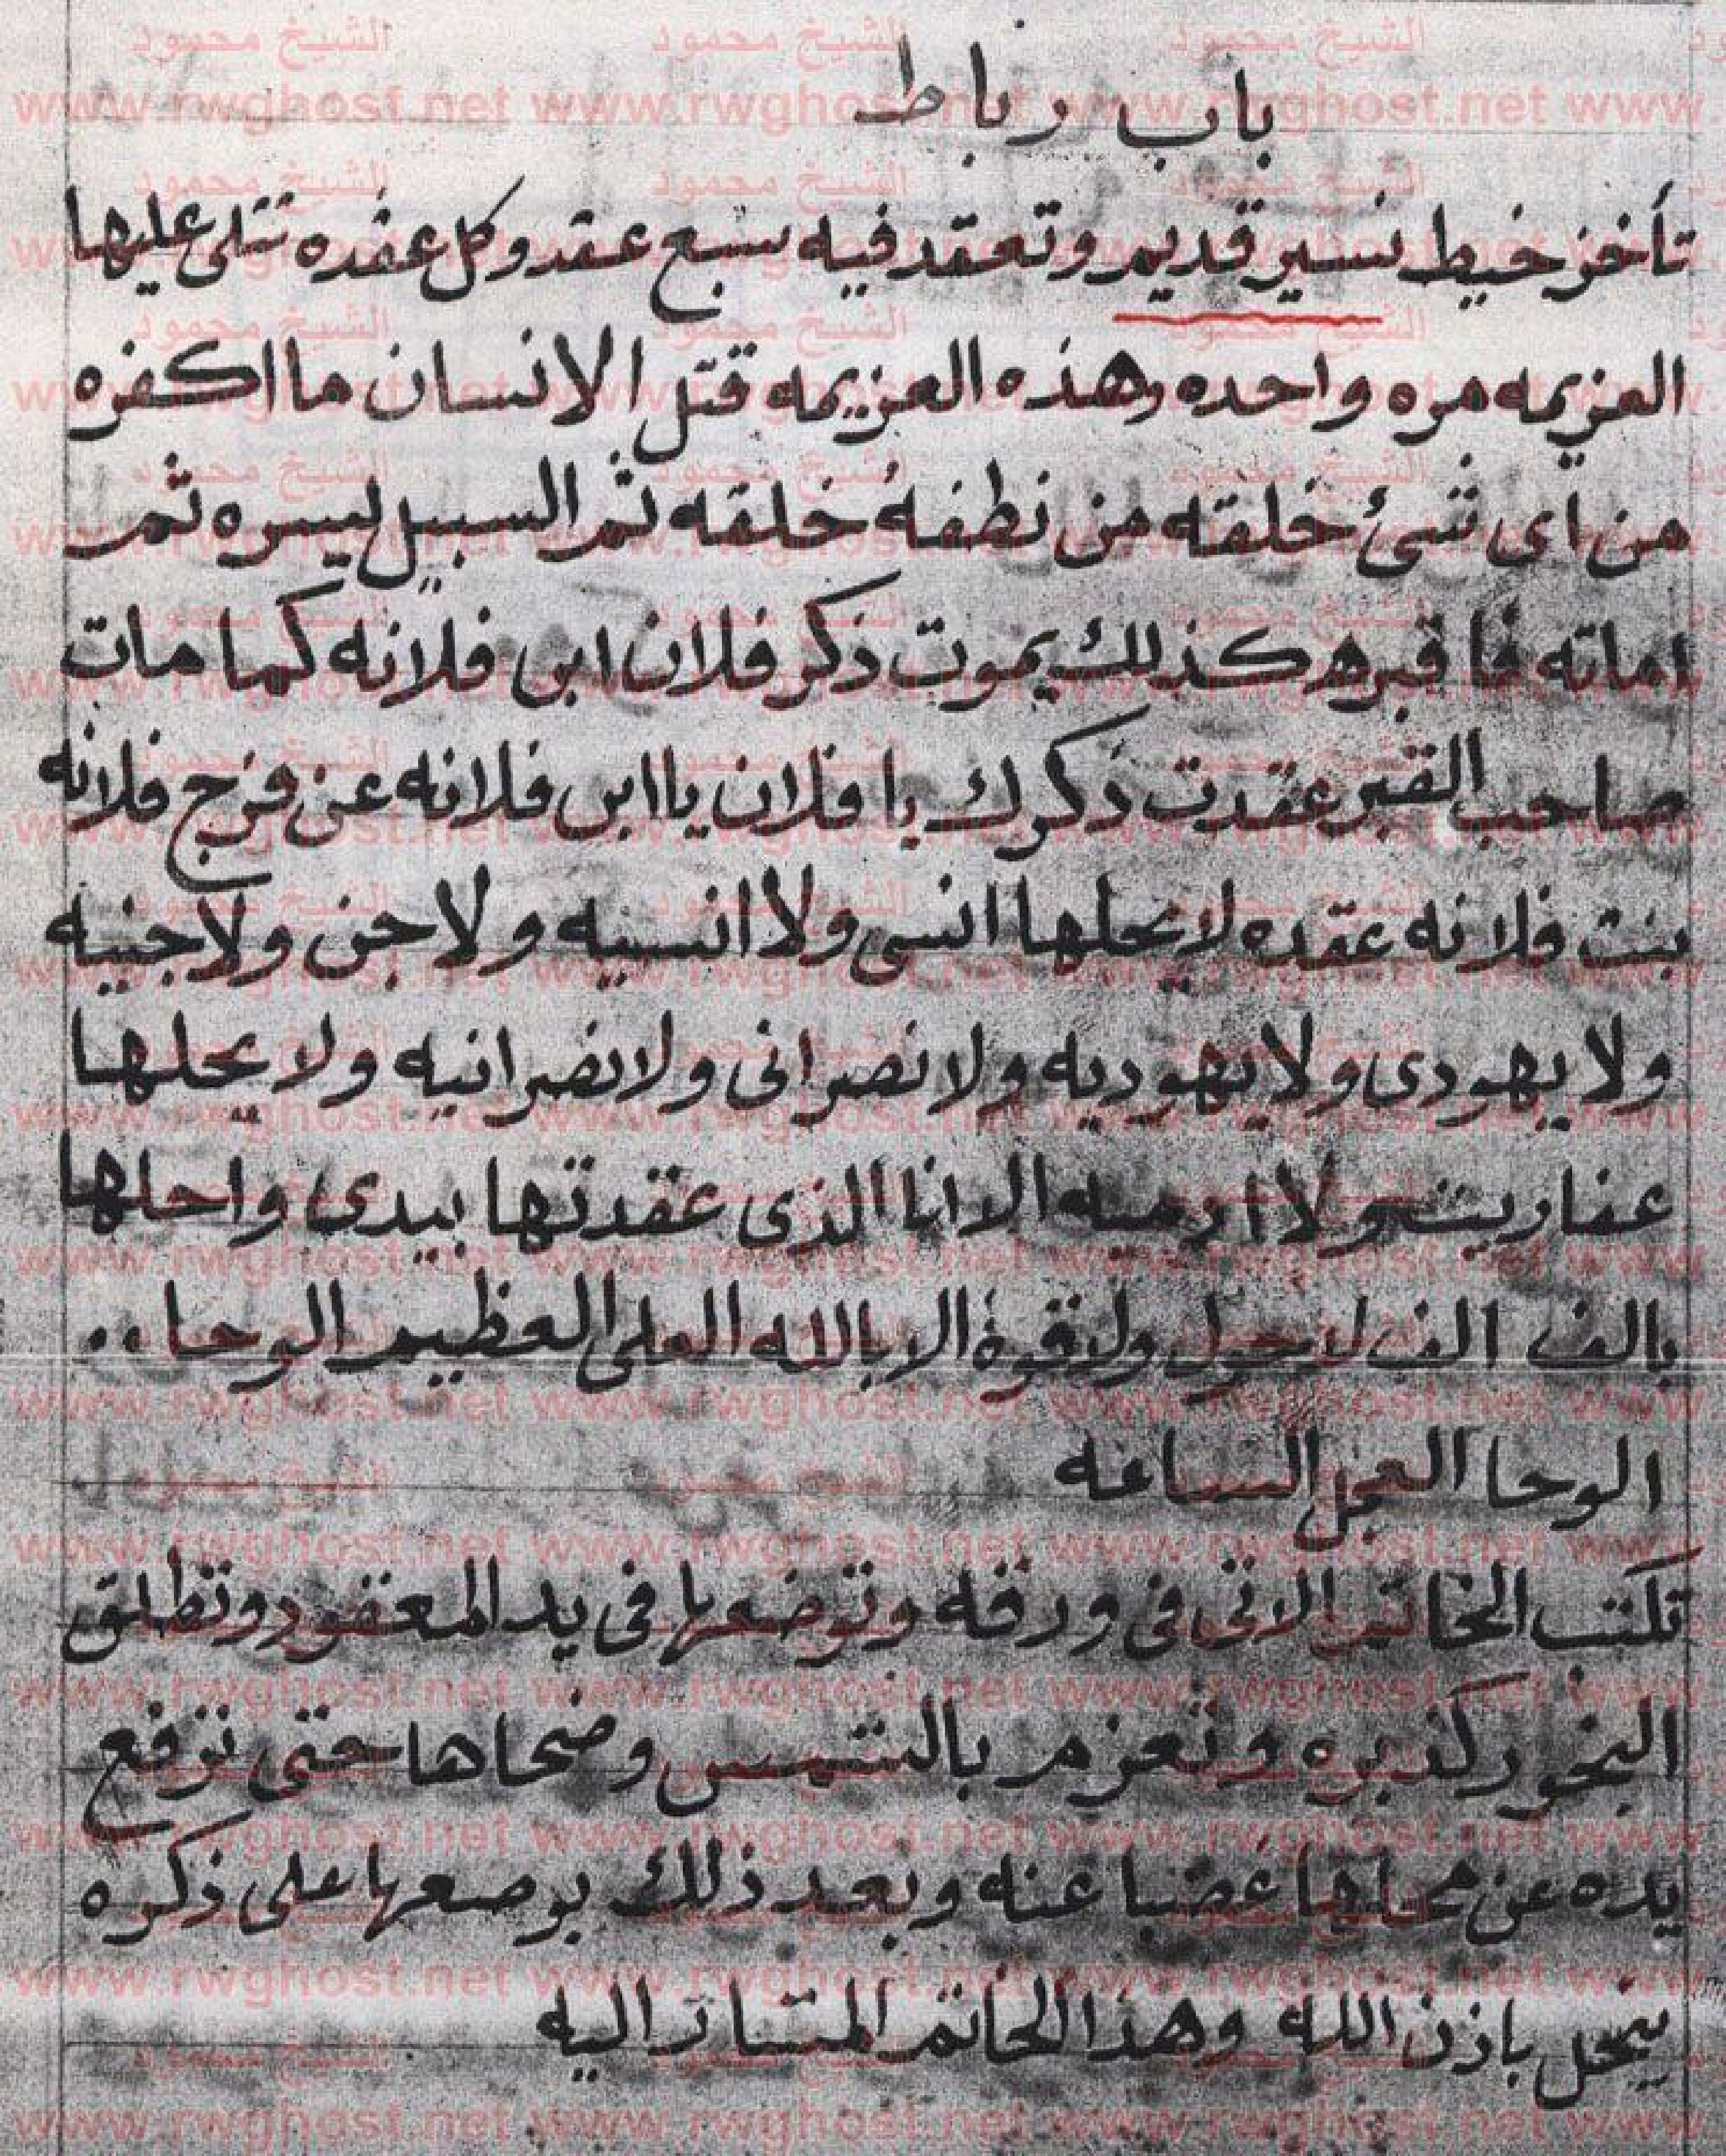 باب رباط
تأخذ خيط نسير قديم وتعقد فيه سبع عقد وكل عقده تتلى عليها
العزيمه مره واحده وهذه العزيمه قتل الانسان ما اكفره
من اى شئ خلقه من نطفة خلقه ثم السبيل ليسره ثم
اماته فاقبره كذلك يموت ذكر فلان ابن فلانه كما مات
صاحب القبر عقدت ذكرك يا فلان يا ابن فلانه عن فرج فلانه
بنت فلانه عقده لا يحلها انسى ولا انسيه ولا جن ولا جنيه
ولا يهودى ولا يهوديه ولا نصرانى ولا نصرانيه ولا يحلها
عفاريت ولا ارميه الا انا الذى عقدتها بيدى واحلها
بالف الف لا حول ولا قوة الا بالله العلى العظيم الوحا..
الوحا العجل الساعه
تكتب الخاتم الاتى فى ورقه وتوضعها فى يد المعقود وتطلق
البخور كزبره وتعزم بالشمس وضحاها حتى ترفع
يده عن محلها غضبا عنه وبعد ذلك يوضعها على ذكره
ينحل باذن الله وهذا الخاتم المشار اليه
الشيخ محمود
www.rwghost.net